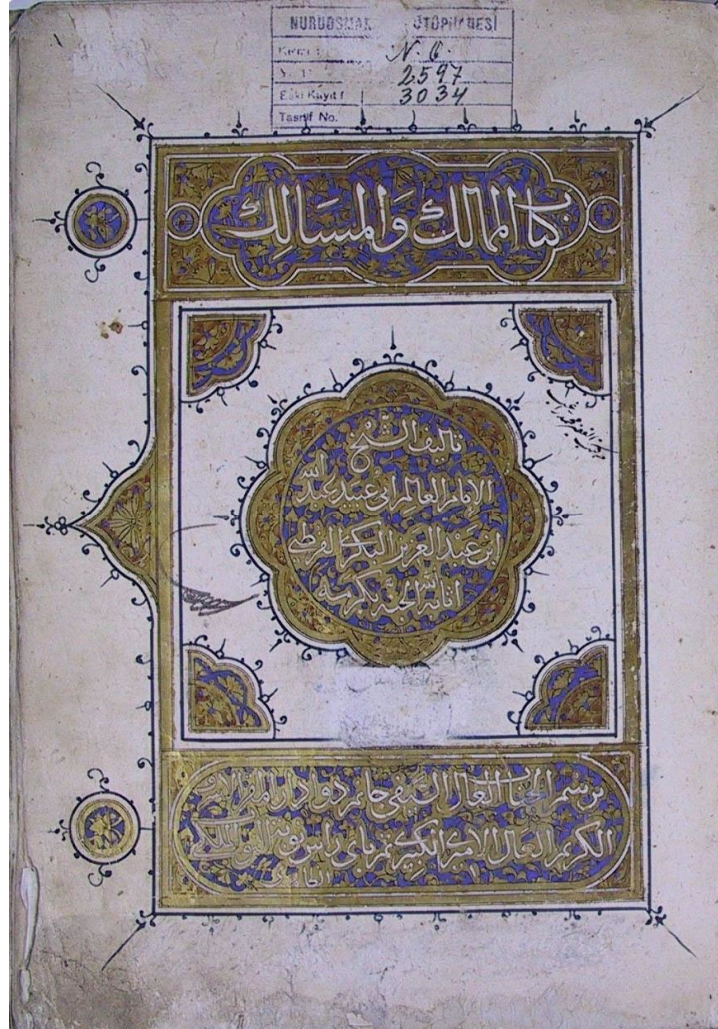 NURUOSMANİYE KÜTÜPHANESİ
Kısmı : N. O.
2597
Eski Kayıt 3034
Tasnif No.
كتاب الممالك والمسالك
تأليف الشيخ
الامام العالم ابى عبيد عبد الله
ابن عبد العزيز البكرى القرطبى
اثابه الله الجنة بكرمه
برسم الجناب العالى السيفى جانم دوادار المقر الاشرف
الكريم العالى الاميرى الكبيرى تمرباى راس نوبة النوب الملكى